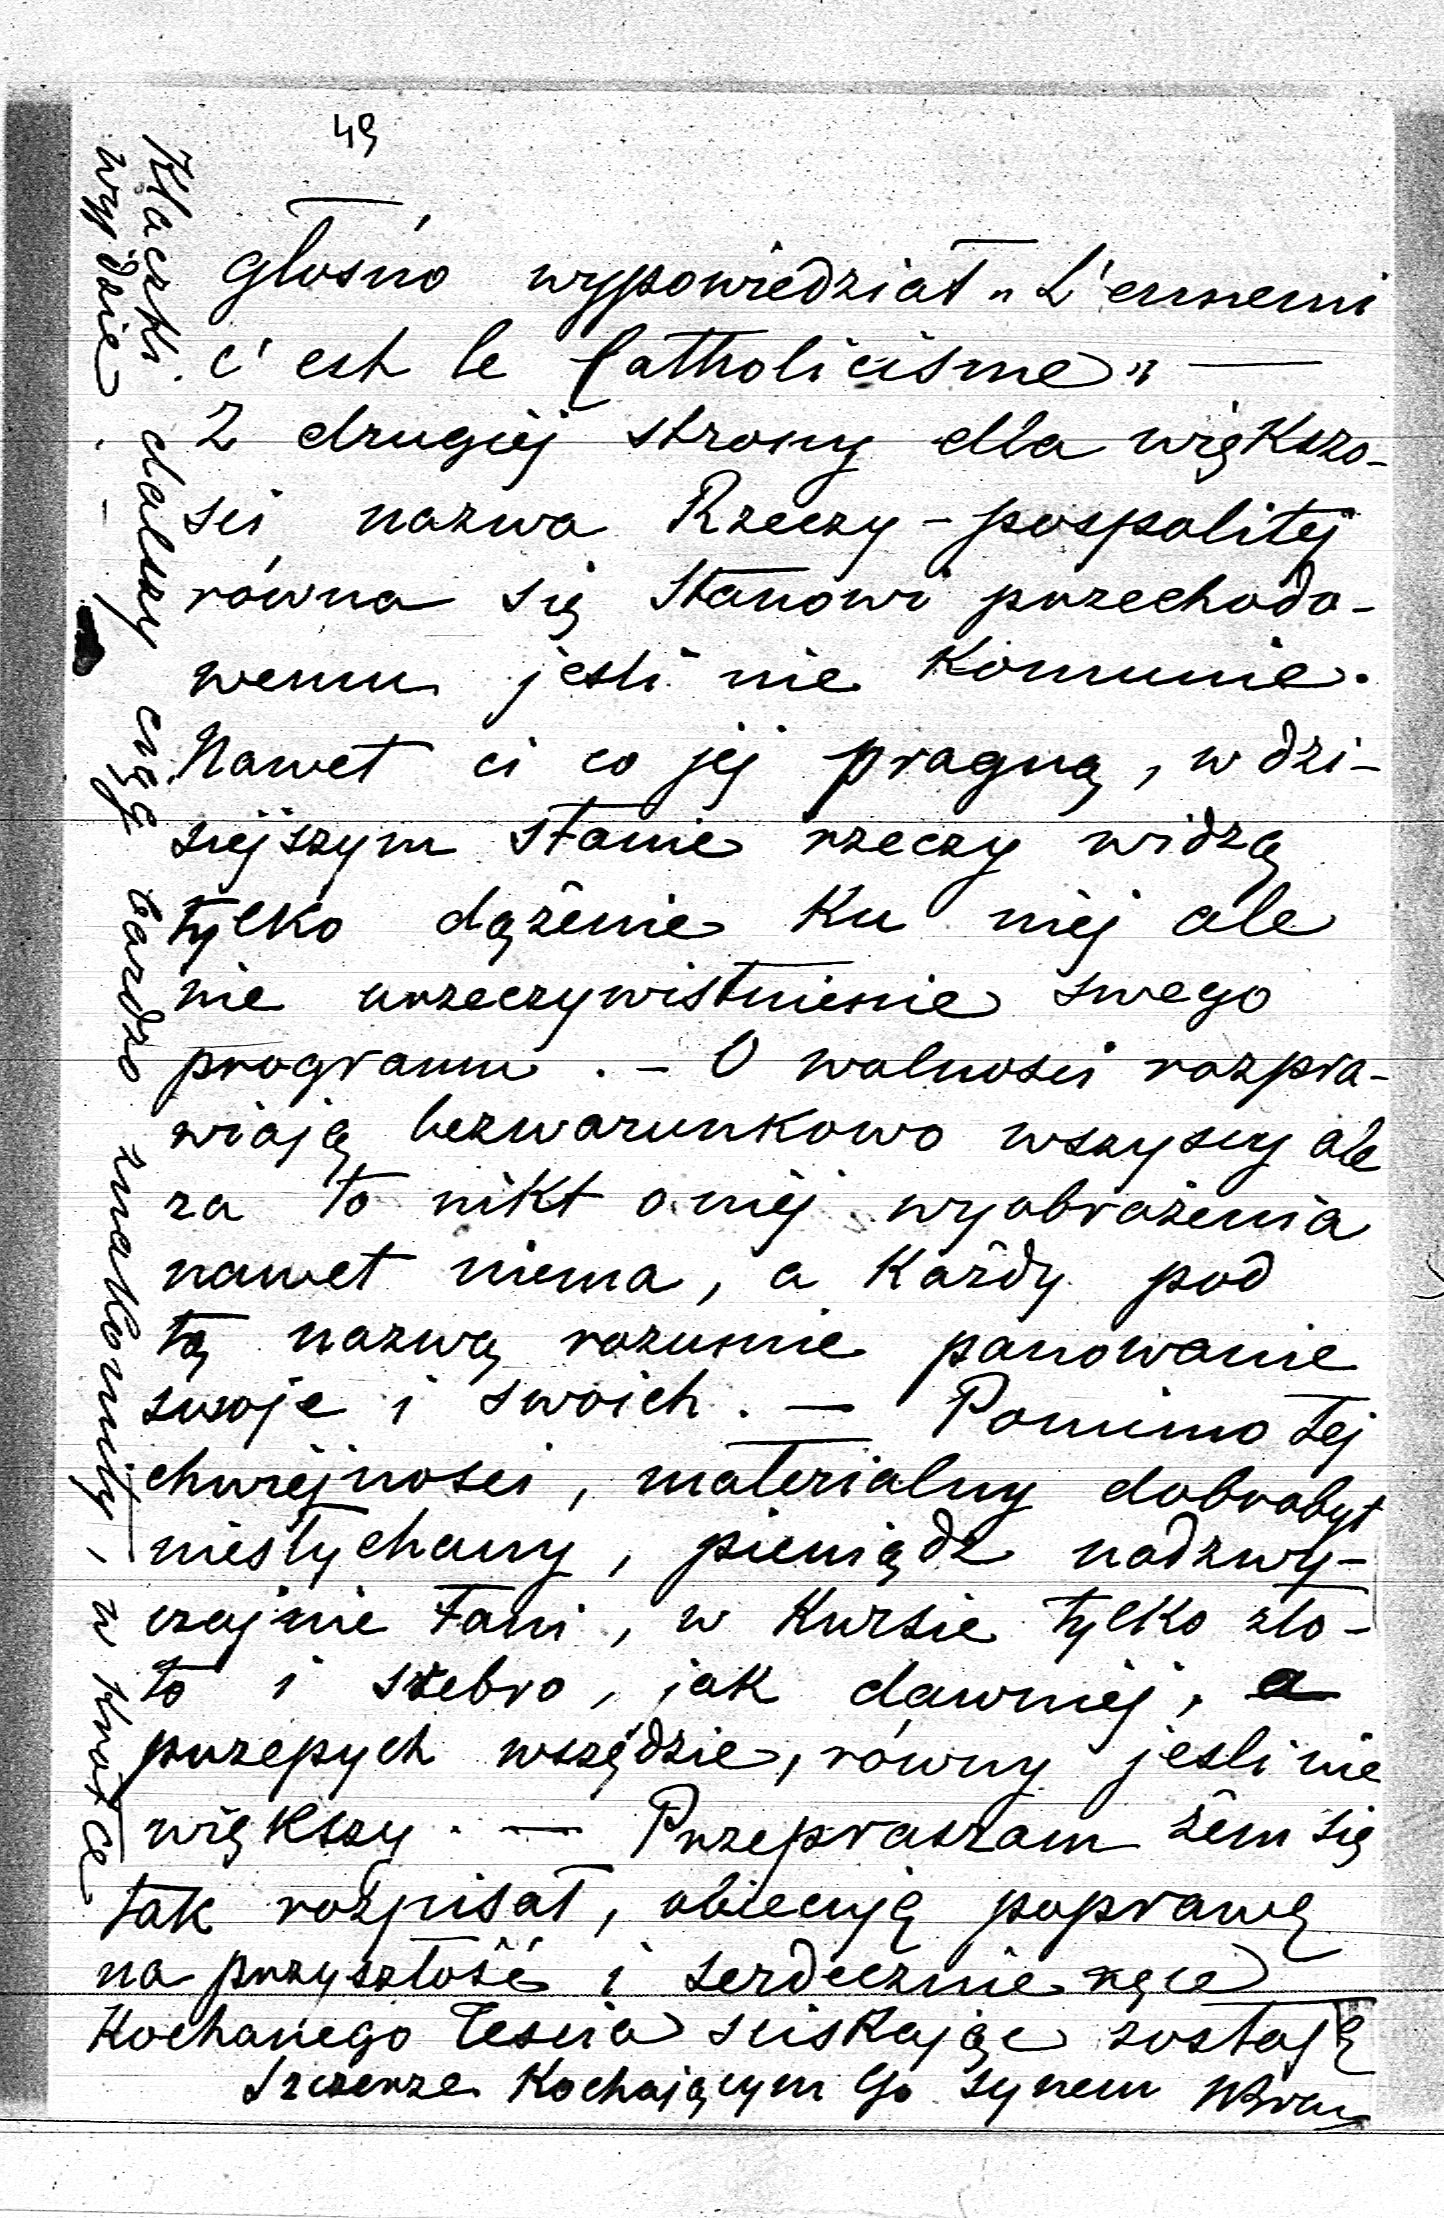 49
głośno wypowiedział „L'ennemi
c'est le Catholicisme" —
Z drugiéj strony dla większo-
sci nazwa Rzeczy-pospolitéj
równa się stanowi przechodo-
wemu jesli nie Komunie.
Nawet ci co jéj pragną, w dzi-
siejszym stanie rzeczy widzą
tylko dążenie Ku niéj ale
nie urzeczywistnienie swego
programu. — O wolnosci rozpra-
wiają bezwarunkowo wszyscy ale
za to nikt o niéj wyobrażenia
nawet niema, a Każdy pod
tą nazwą rozumie panowanie
swoje i swoich. — Pomimo téj
chwiéjnosci, materialny dobrobyt
niesłychany, pieniądz nadzwy-
czajnie tani, w Kursie tylko zło-
to i srebro, jak dawniéj, a
przepych wszędzie, równy jesli nie
większy. — Przepraszam żem się
tak rozpisał, obiecuję poprawę
na przyszłość i serdecznie ręce
Kochanego Tescia sciskając zostaję
Szczerze Kochającym Go synem
Klaczki dalszy ciąg bardzo znakomity, w krotce
wyjdzie. —